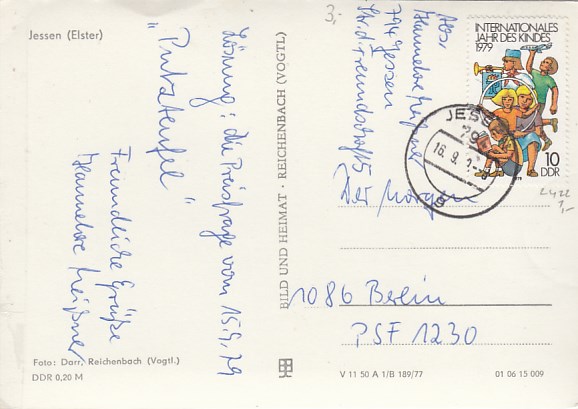 Jessen (Elster)
Lösung: die Preisfrage vom 15.9.79
"Putzteufel"
Freundliche Grüße
Hannelore Meißner
Foto: Darr, Reichenbach (Vogtl.)
DDR 0,20 M
BILD UND HEIMAT · REICHENBACH (VOGTL)
3,-
Abs.
Hannelore Meißner
794 Jessen
Str. d. Freundschaft 5
INTERNATIONALES
JAHR DES KINDES
1979
10
DDR
JESS
79
16. 9. 7
Der Morgen
1086 Berlin
PSF 1230
2422
1,-
V 11 50 A 1/B 189/77
01 06 15 009